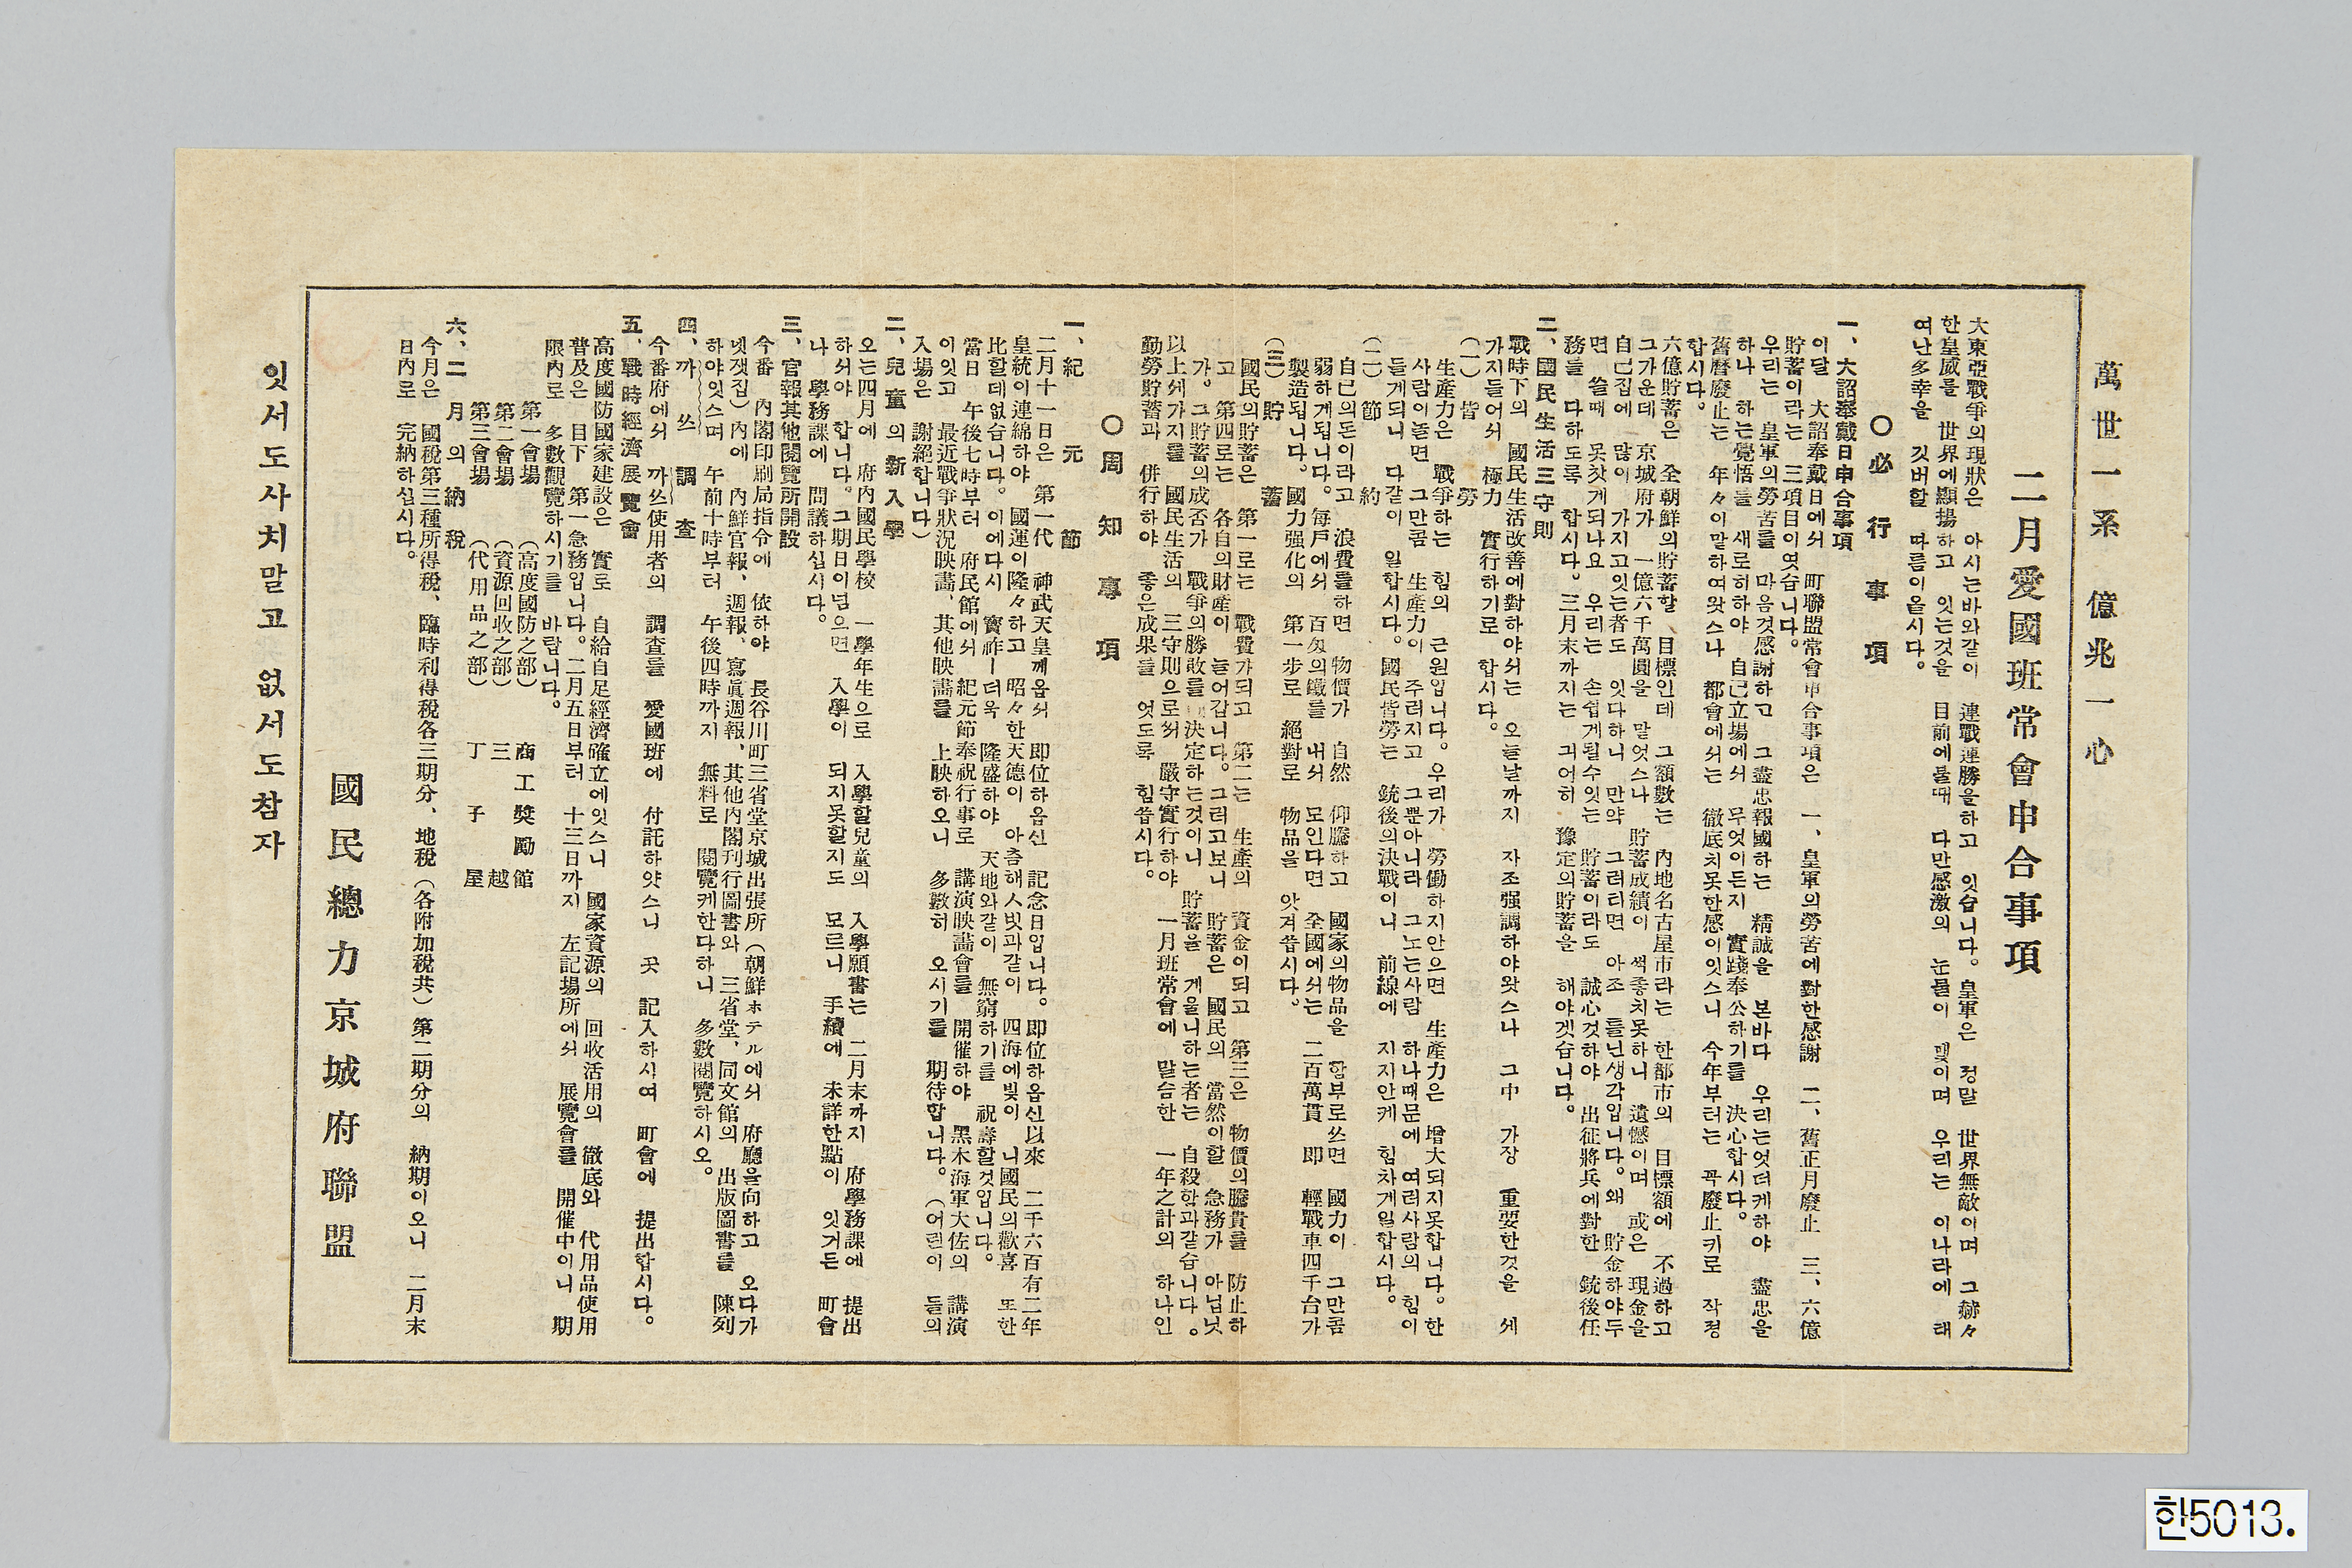 萬世一系 億兆一心
二月愛國班常會申合事項
大東亞戰爭의現狀은 아시는바와같이 連戰連勝을하고 잇습니다。皇軍은 정말 世界無敵이며 그赫々
한皇威를 世界에顯揚하고 잇는것을 目前에볼때 다만感激의 눈물이 맺이며 우리는 이나라에 태
여난多幸을 깃버할 따름이올시다。
○必行事項
一、大詔奉戴日申合事項
이달 大詔奉戴日에서 町聯盟常會申合事項은 一、皇軍의勞苦에對한感謝 二、舊正月廢止 三、六億
貯蓄이라는 三項目이엿습니다。
우리는 皇軍의勞苦를 마음것感謝하고 그盡忠報國하는 精誠을 본바다 우리는엇더케하야 盡忠을
하나 하는覺悟를 새로히하야 自己立場에서 무엇이든지 實踐奉公하기를 決心합시다。
舊曆廢止는 年々이말하여왓스나 都會에서는 徹底치못한感이잇스니 今年부터는 꼭廢止키로 작정
합시다。
六億貯蓄은 全朝鮮의貯蓄할 目標인데 그額數는 內地名古屋市라는 한都市의 目標額에 不過하고
그가운데 京城府가 一億六千萬圓을 말엇스나 貯蓄成績이 썩좋치못하니 遺憾이며 或은 現金을
自己집에 많이 가지고잇는者도 잇다하니 만약 그러타면 아조 틀닌생각입니다。왜 貯金하야두
면 쓸때 못찻게되나요 우리는 손쉽게될수잇는 貯蓄이라도 誠心것하야 出征將兵에對한 銃後任
務를 다하도록 합시다。三月末까지는 긔어히 豫定의貯蓄을 해야겟습니다。
二、國民生活三守則
戰時下의 國民生活改善에對하야서는 오늘날까지 자조强調하야왓스나 그中 가장 重要한것을 세
가지들어서 極力 實行하기로 합시다。
(一) 皆勞
生產力은 戰爭하는 힘의 근원입니다。우리가 勞働하지안으면 生產力은 增大되지못합니다。한
사람이놀면 그만콤 生產力이 주러지고 그뿐아니라 그노는사람 하나때문에 여러사람의 힘이
들게되니 다같이 일합시다。國民皆勞는 銃後의決戰이니 前線에 지지안케 힘차게일합시다。
(二) 節約
自己의돈이라고 浪費를하면 物價가 自然 仰騰하고 國家의物品을 함부로쓰면 國力이 그만콤
弱하게됩니다。每戶에서 百匁의鐵를 내서 모인다면 全國에서는 二百萬貫 即 輕戰車四千台가
製造됩니다。國力强化의 第一步로 絕對로 物品을 앗겨씁시다。
(三) 貯蓄
國民의貯蓄은 第一로는 戰費가되고 第二는 生產의 資金이되고 第三은 物價의騰貴를 防止하
고 第四로는 各自의財產이 늘어갑니다。그러고보니 貯蓄은 國民의 當然이할 急務가 아닙닛
가。그貯蓄의成否가 戰爭의勝敗를 決定하는것이니 貯蓄을 게을니하는者는 自殺함과같습니다。
以上세가지를 國民生活의 三守則으로써 嚴守實行하야 一月班常會에 말슴한 一年之計의 하나인
勤勞貯蓄과 併行하야 좋은成果를 엇도록 힘씁시다。
○周知事項
一、紀元節
二月十一日은 第一代 神武天皇께옵서 即位하옵신 記念日입니다。即位하옵신以來 二千六百有二年
皇統이連綿하야 國運이隆々하고 昭々한天德이 아츰해人빗과같이 四海에빛이 니國民의歡喜 또한
比할데없습니다。이에다시 寶祚ー더욱 隆盛하야 天地와같이 無窮하기를 祝壽할것입니다。
當日 午後七時부터 府民館에서 紀元節奉祝行事로 講演映畵會를 開催하야 黑木海軍大佐의 講演
이잇고 最近戰爭狀況映畵、其他映畵를 上映하오니 多數히 오시기를 期待합니다。(어린이 들의
入場은 謝絕합니다)
二、兒童의新入學
오는四月에 府內國民學校 一學年生으로 入學할兒童의 入學願書는 二月末까지 府學務課에 提出
하서야 합니다。그期日이넘으면 入學이 되지못할지도 모르니 手續에 未詳한點이 잇거든 町會
나 學務課에 問議하십시다。
三、官報其他閱覽所開設
今番 內閣印刷局指令에 依하야 長谷川町三省堂京城出張所(朝鮮ホテル에서 府廳을向하고 오다가
넷잿집)內에 內鮮官報、週報、寫眞週報、其他內閣刊行圖書와 三省堂、同文館의 出版圖書를 陳列
하야잇스며 午前十時부터 午後四時까지 無料로 閱覽케한다하니 多數閱覽하시오。
四、까쓰調査
今番府에서 까쓰使用者의 調査를 愛國班에 付託하얏스니 곳 記入하시여 町會에 提出합시다。
五、戰時經濟展覽會
高度國防國家建設은 實로 自給自足經濟確立에잇스니 國家資源의 回收活用의 徹底와 代用品使用
普及은 目下 第一急務입니다。二月五日부터 十三日까지 左記場所에서 展覽會를 開催中이니 期
限內로 多數觀覽하시기를 바랍니다。
第一會場 (高度國防之部) 商工奬勵館
第二會場 (資源回收之部) 三越
第三會場 (代用品之部) 丁子屋
六、二月의納稅
今月은 國稅第三種所得稅、臨時利得稅各三期分、地稅(各附加稅共)第二期分의 納期이오니 二月末
日內로 完納하십시다。
國民總力京城府聯盟
잇서도사치말고 없서도참자
한5013.